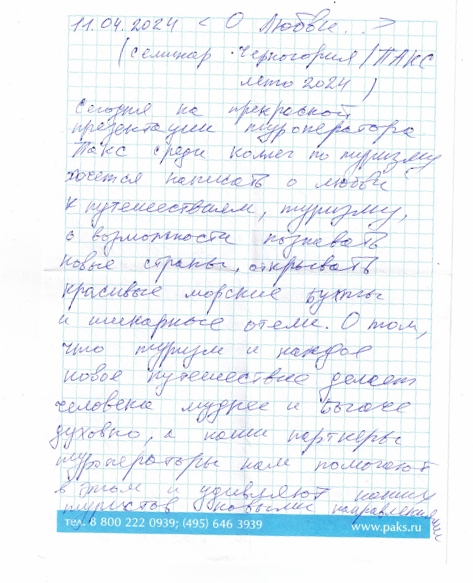 11.04.2024 < О Любви... >
(семинар Черногория/ПАКС
лето 2024)
Сегодня на прекрасной
презентации туроператора
Пакс среди коллег по туризму
хочется написать о любви
к путешествиям, туризму,
о возможности познавать
новые страны, открывать
красивые морские бухты
и шикарные отели. О том,
что туризм и каждое
новое путешествие делает
человека мудрее и богаче
духовно, а наши партнеры
туроператоры нам помогают
в этом и удивляют наших
туристов новыми направлениями
тел. 8 800 222 0939; (495) 646 3939
www.paks.ru